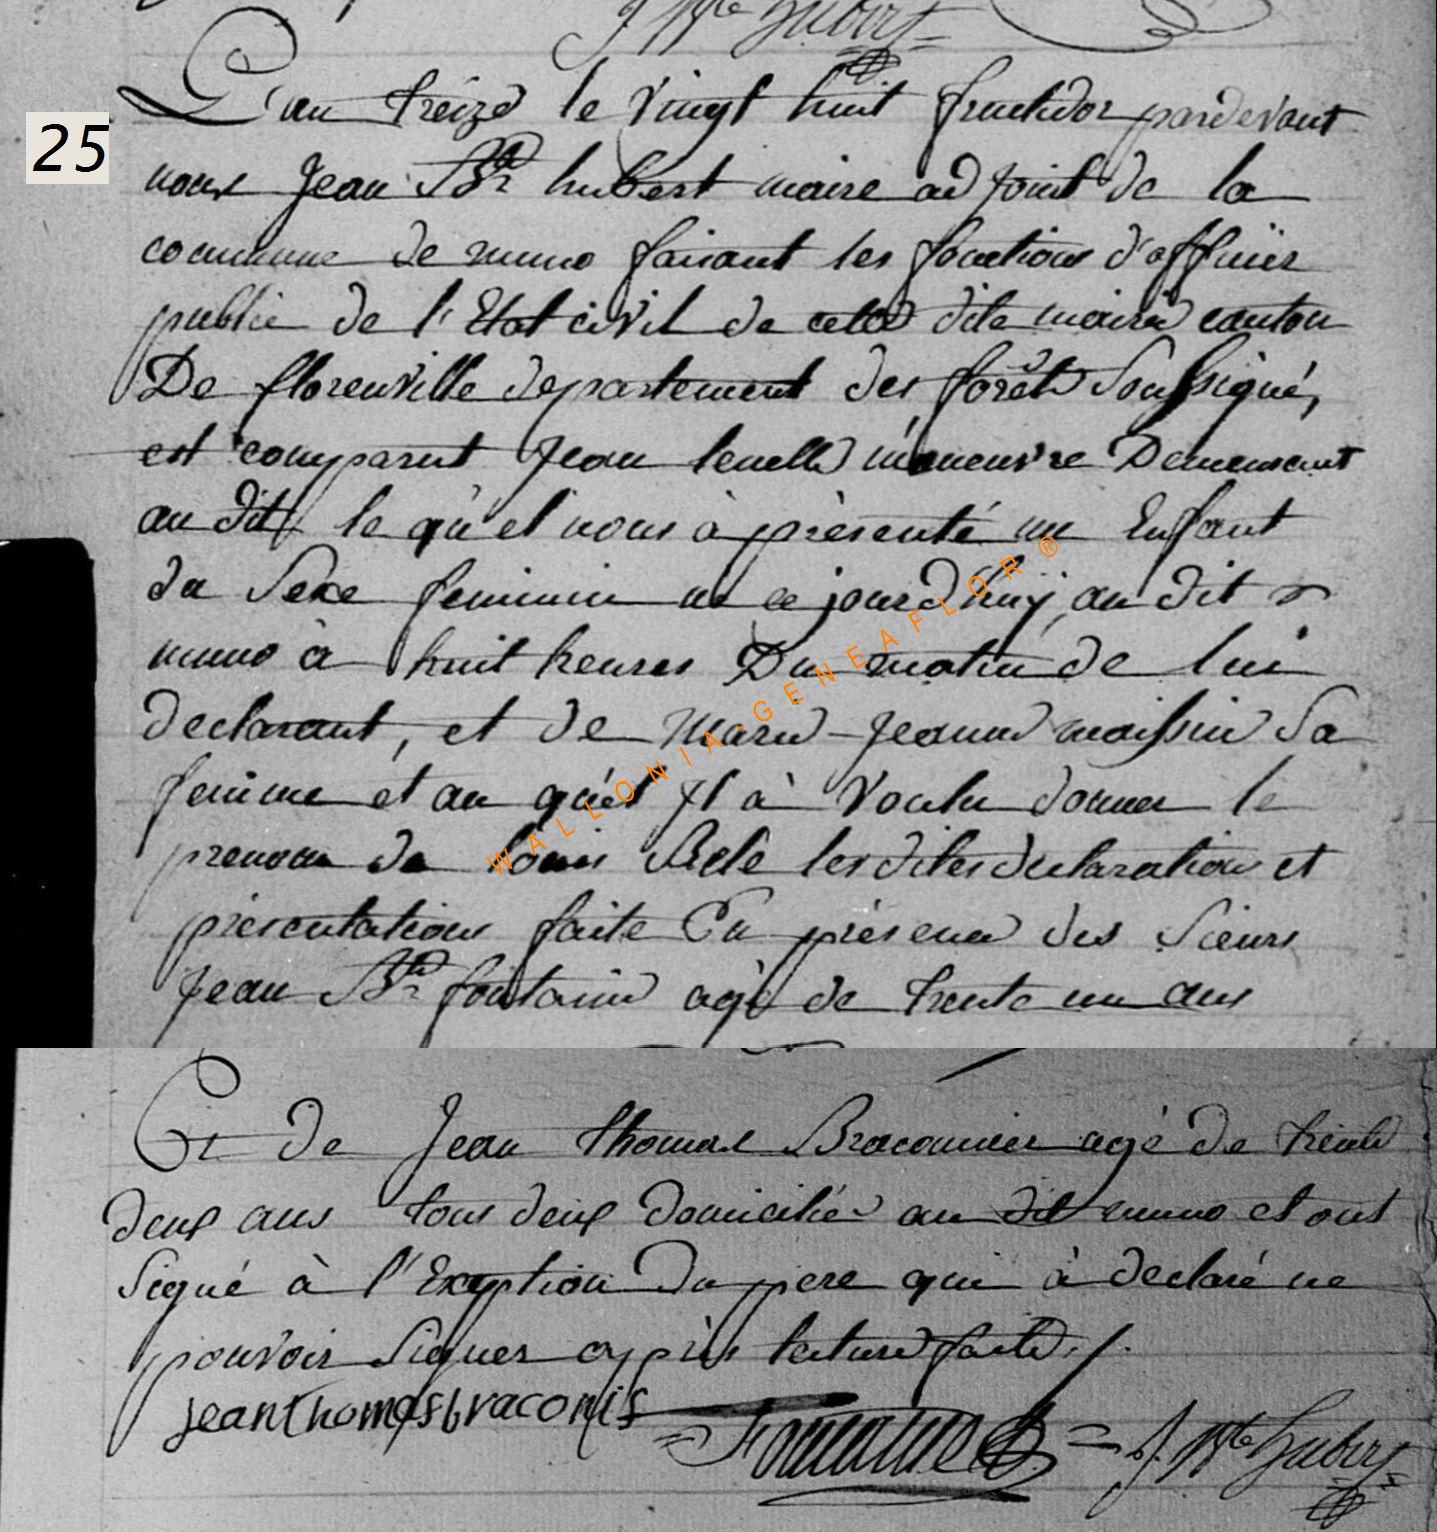 J. Bte hubert
25
L'an treize le vingt huit fructidor pardevant
nous Jean Bte hubert maire adjoint de la
commune de muno faisant les fonctions d'officier
public de l'Etat civil de cette dite mairie canton
De florenville departement des forêts Soussigné,
est comparut Jean lenelle maneuvre Demeurant
au dit le qu'el nous à présenté un Enfant
du Sexe feminin né ce jourd'huÿ au dit
muno à huit heures Du matin de lui
declarant, et de Marie-Jeanne maissin Sa
femme et au quel Il à Voulu donner le
prenom de les dites declaration et
présentations faite En présence des Sieurs
Jean Bte fontaine agé de trente un ans
Et de Jean thomas Braconnier agé de trente
deux ans tous deux domicilié au dit muno et ont
Signé à l'Exception Du pere qui à declaré ne
pouvoir Signer après lecture faite ./.
jeanthomasbraconis
Fontaine
J. Bte hubert
WALLONIA-GENEAFLOR®